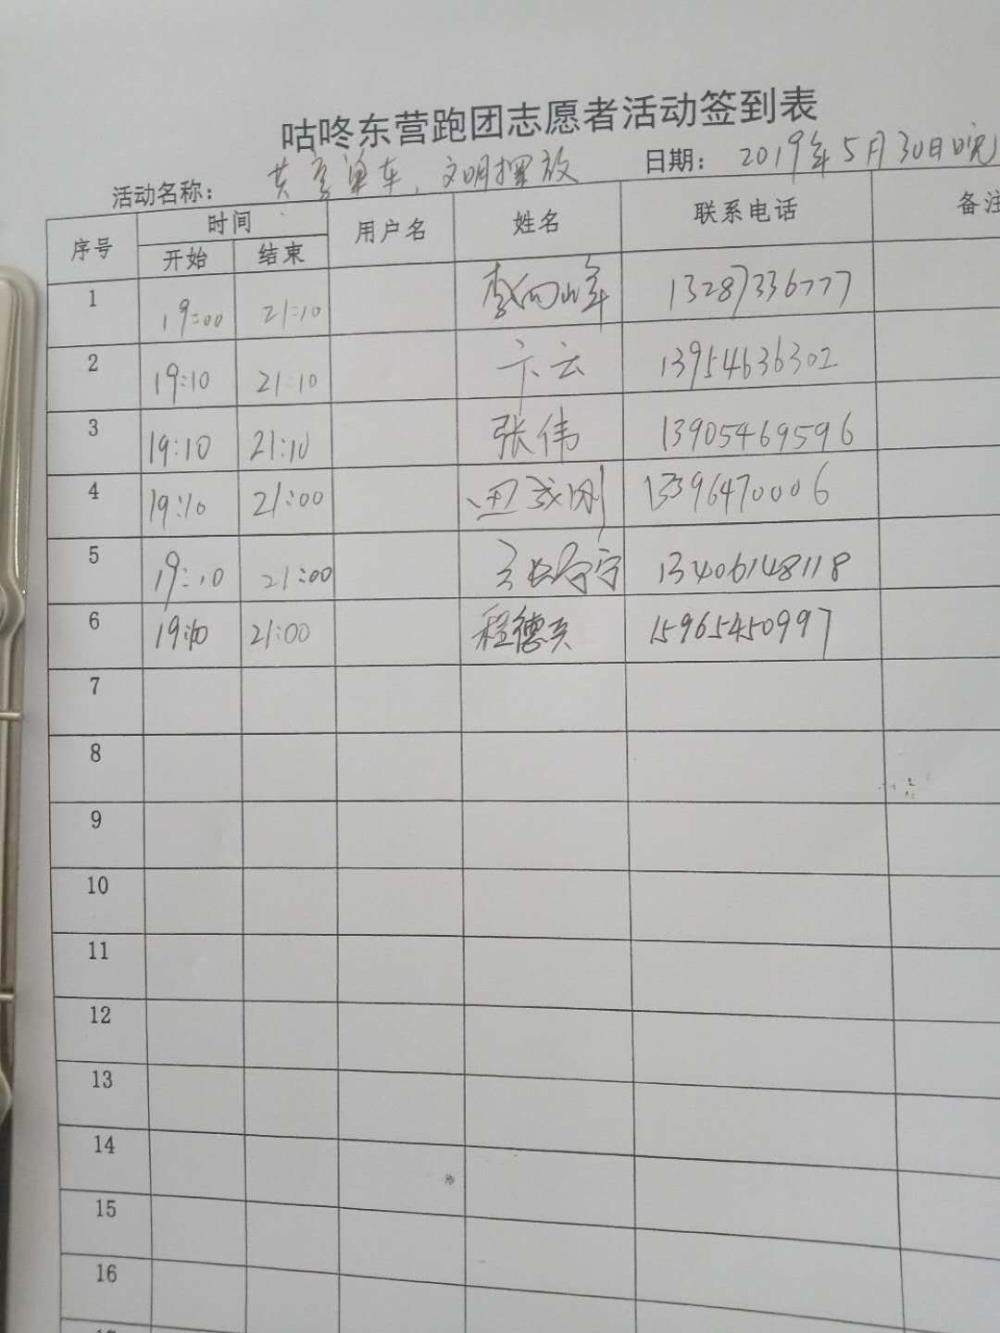 咕咚东营跑团志愿者活动签到表
活动名称: 共享单车、文明摆放 日期: 2019年5月30日晚
序号 时间 用户名 姓名 联系电话 备注
开始 结束
1 19:00 21:10 李向峰 13287336777
2 19:10 21:10 卞云 13954636302
3 19:10 21:10 张伟 13905469596
4 19:10 21:00 13396470006
5 19:10 21:00 13406148118
6 19:10 21:00 程德 15965450997
7
8
9
10
11
12
13
14
15
16